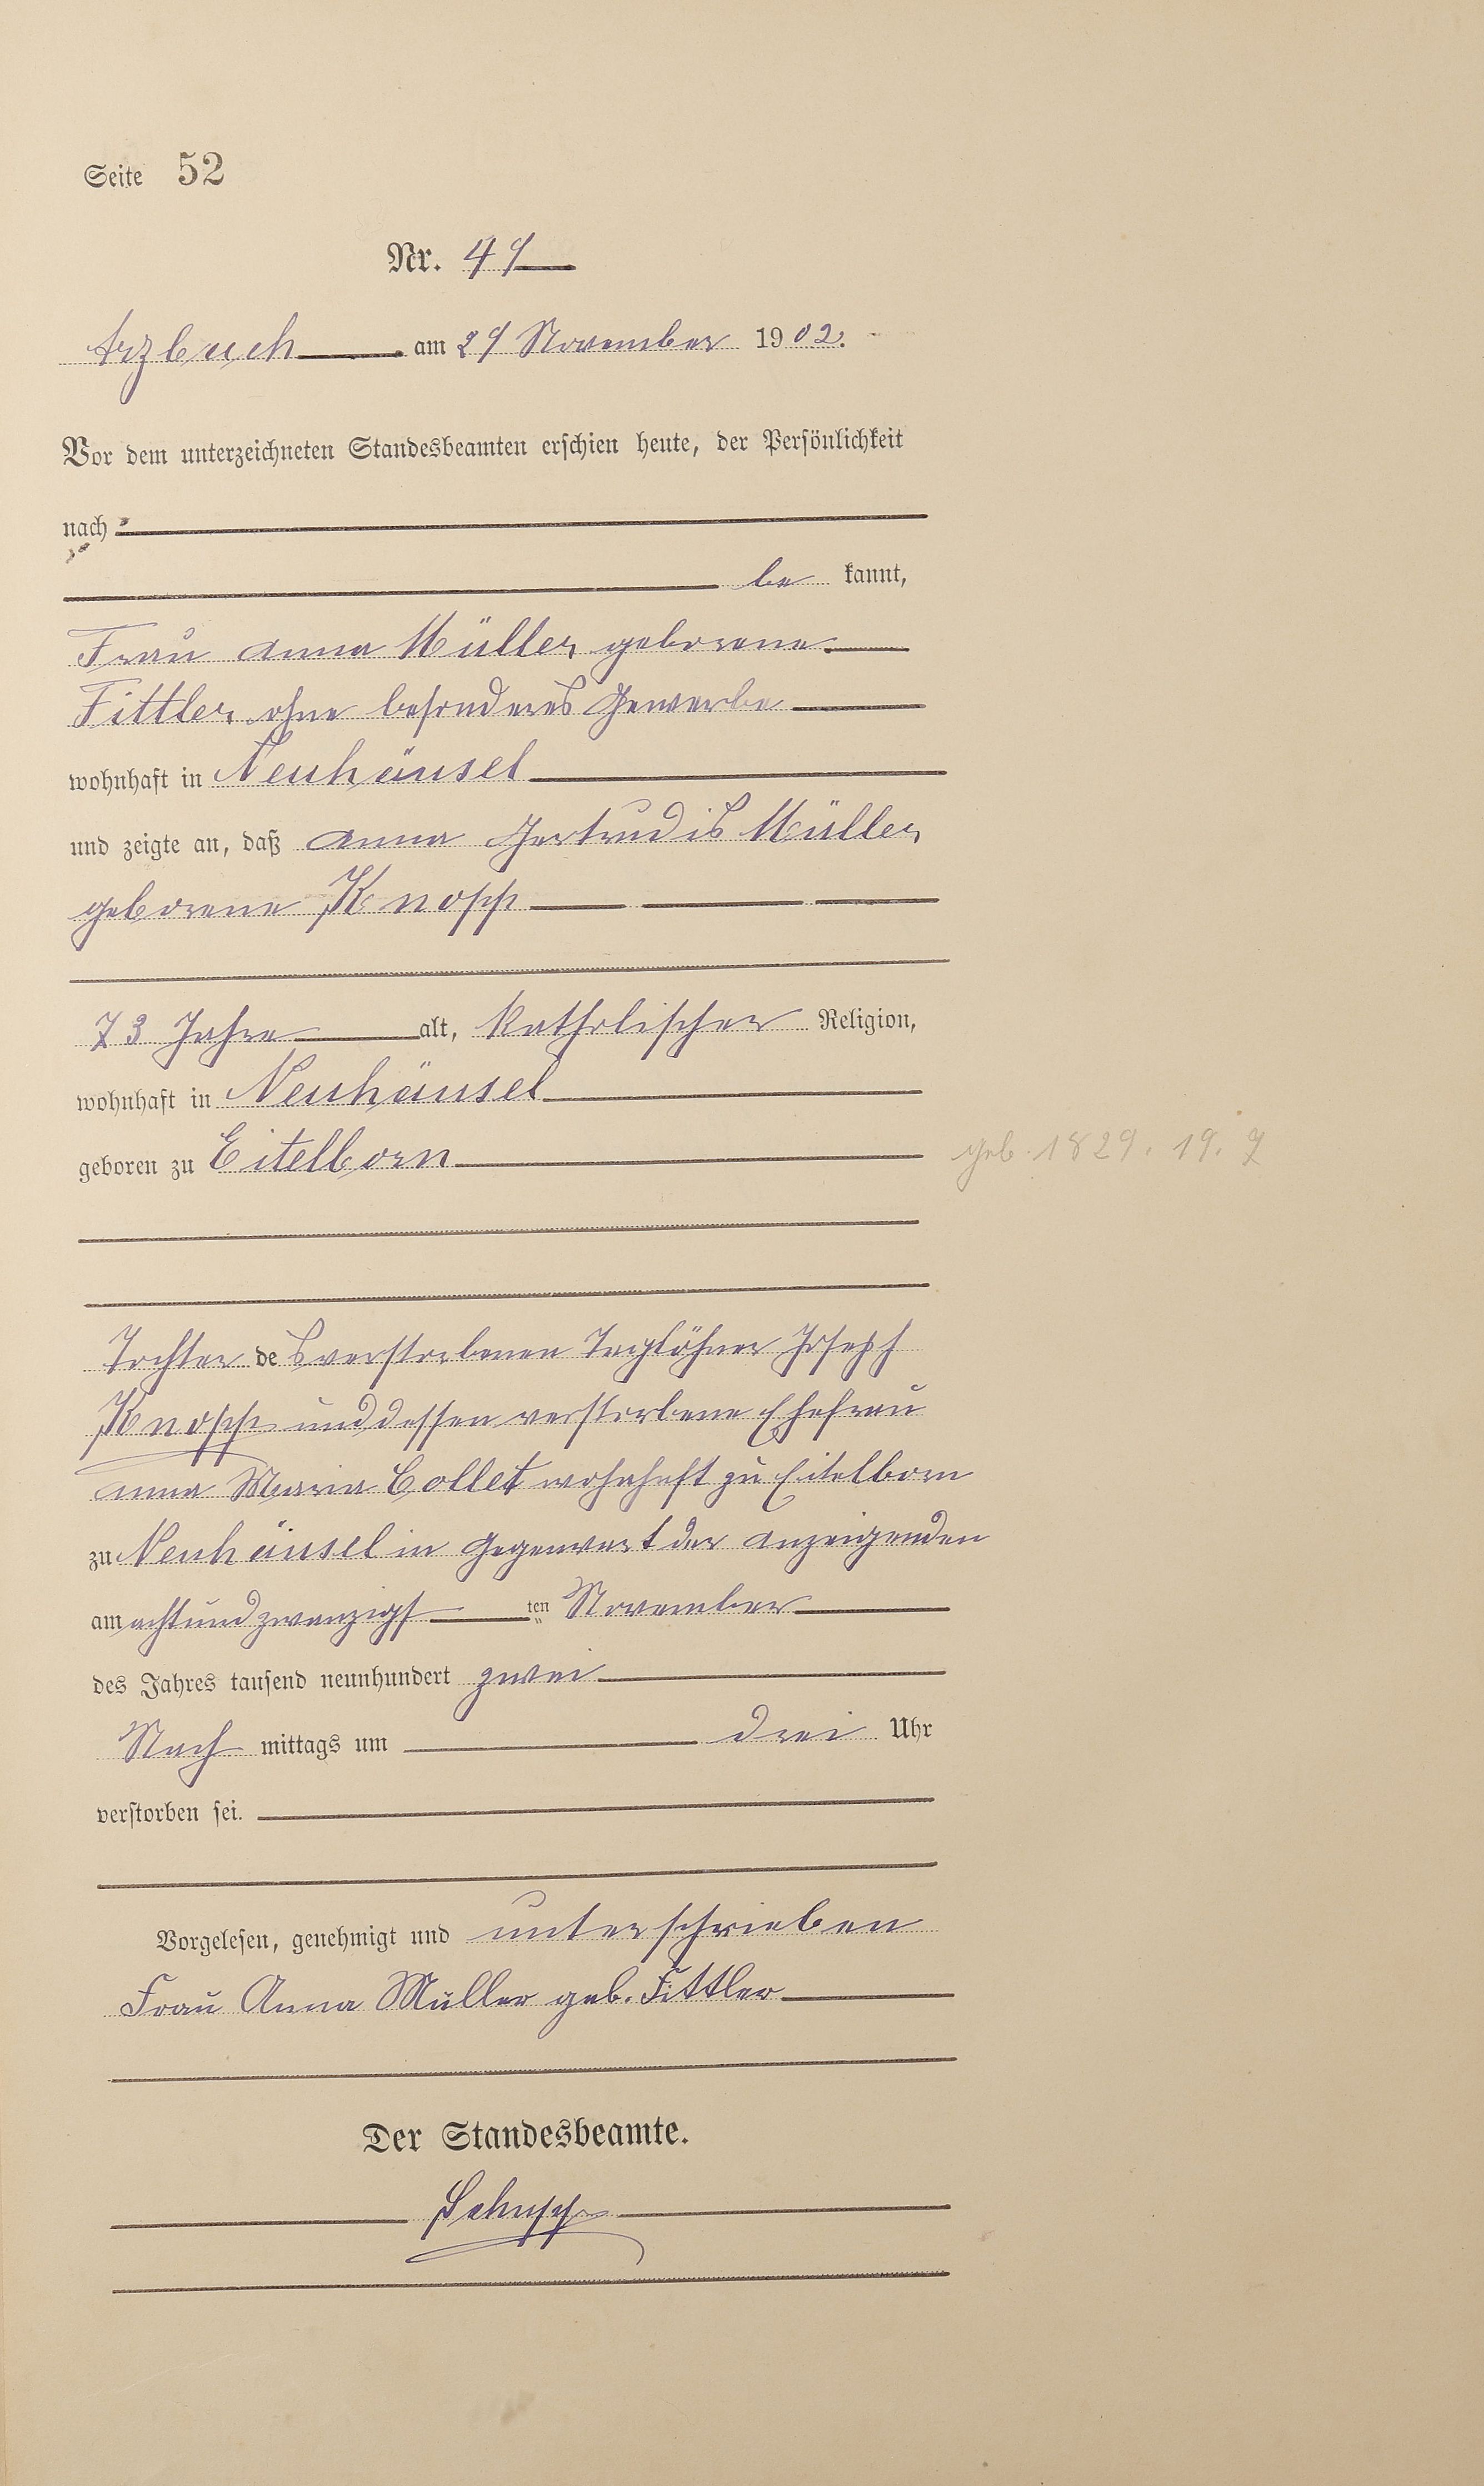 Seite 52
Nr. 49
Arzbach am 29 November 1902.
Vor dem unterzeichneten Standesbeamten erschien heute, der Persönlichkeit
nach
be kannt,
Frau Anna Müller geborene
Fittler ohne besonderes Gewerbe
wohnhaft in Neuhäusel
und zeigte an, daß Anna Gertrudis Müller
geborene Knopp
73 Jahre alt, katholischer Religion,
wohnhaft in Neuhäusel
geboren zu Eitelborn
geb. 1829. 19. 7
Tochter des verstorbenen Taglöhner Joseph
Knopp und dessen verstorbene Ehefrau
Anna Maria Collet wohnhaft zu Eitelborn
zu Neuhäusel in Gegenwart der Anzeigenden
am achtundzwanzigst ten November
des Jahres tausend neunhundert zwei
Nach mittags um drei Uhr
verstorben sei.
Vorgelesen, genehmigt und unterschrieben
Frau Anna Müller geb. Fittler
Der Standesbeamte.